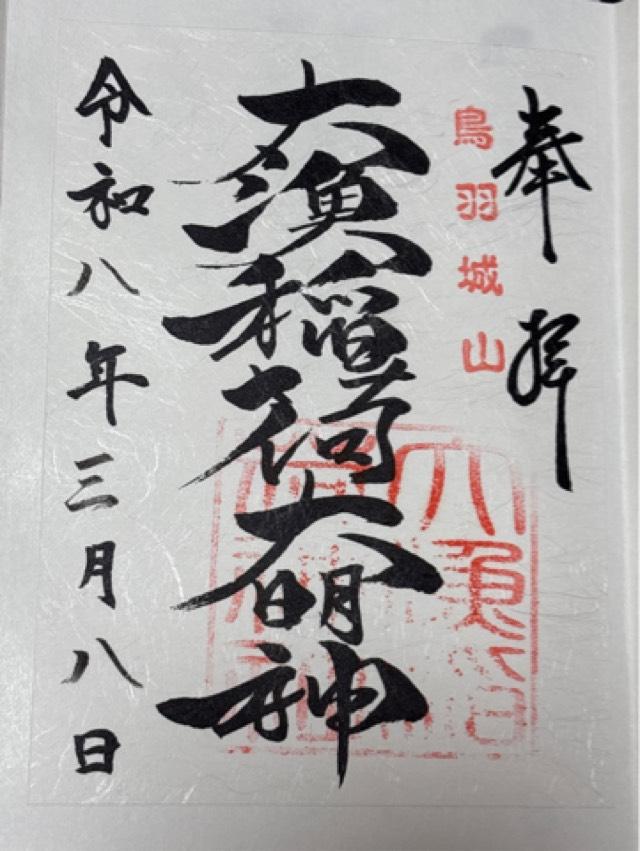 奉拝
鳥羽城山
大漁稲荷大明神
令和八年三月八日